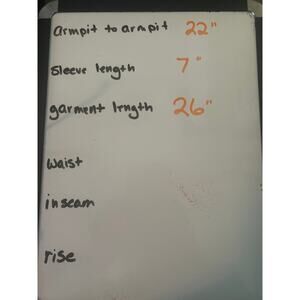 armpit to armpit 22"
Sleeve length 7"
garment length 26"
Waist
inseam
rise